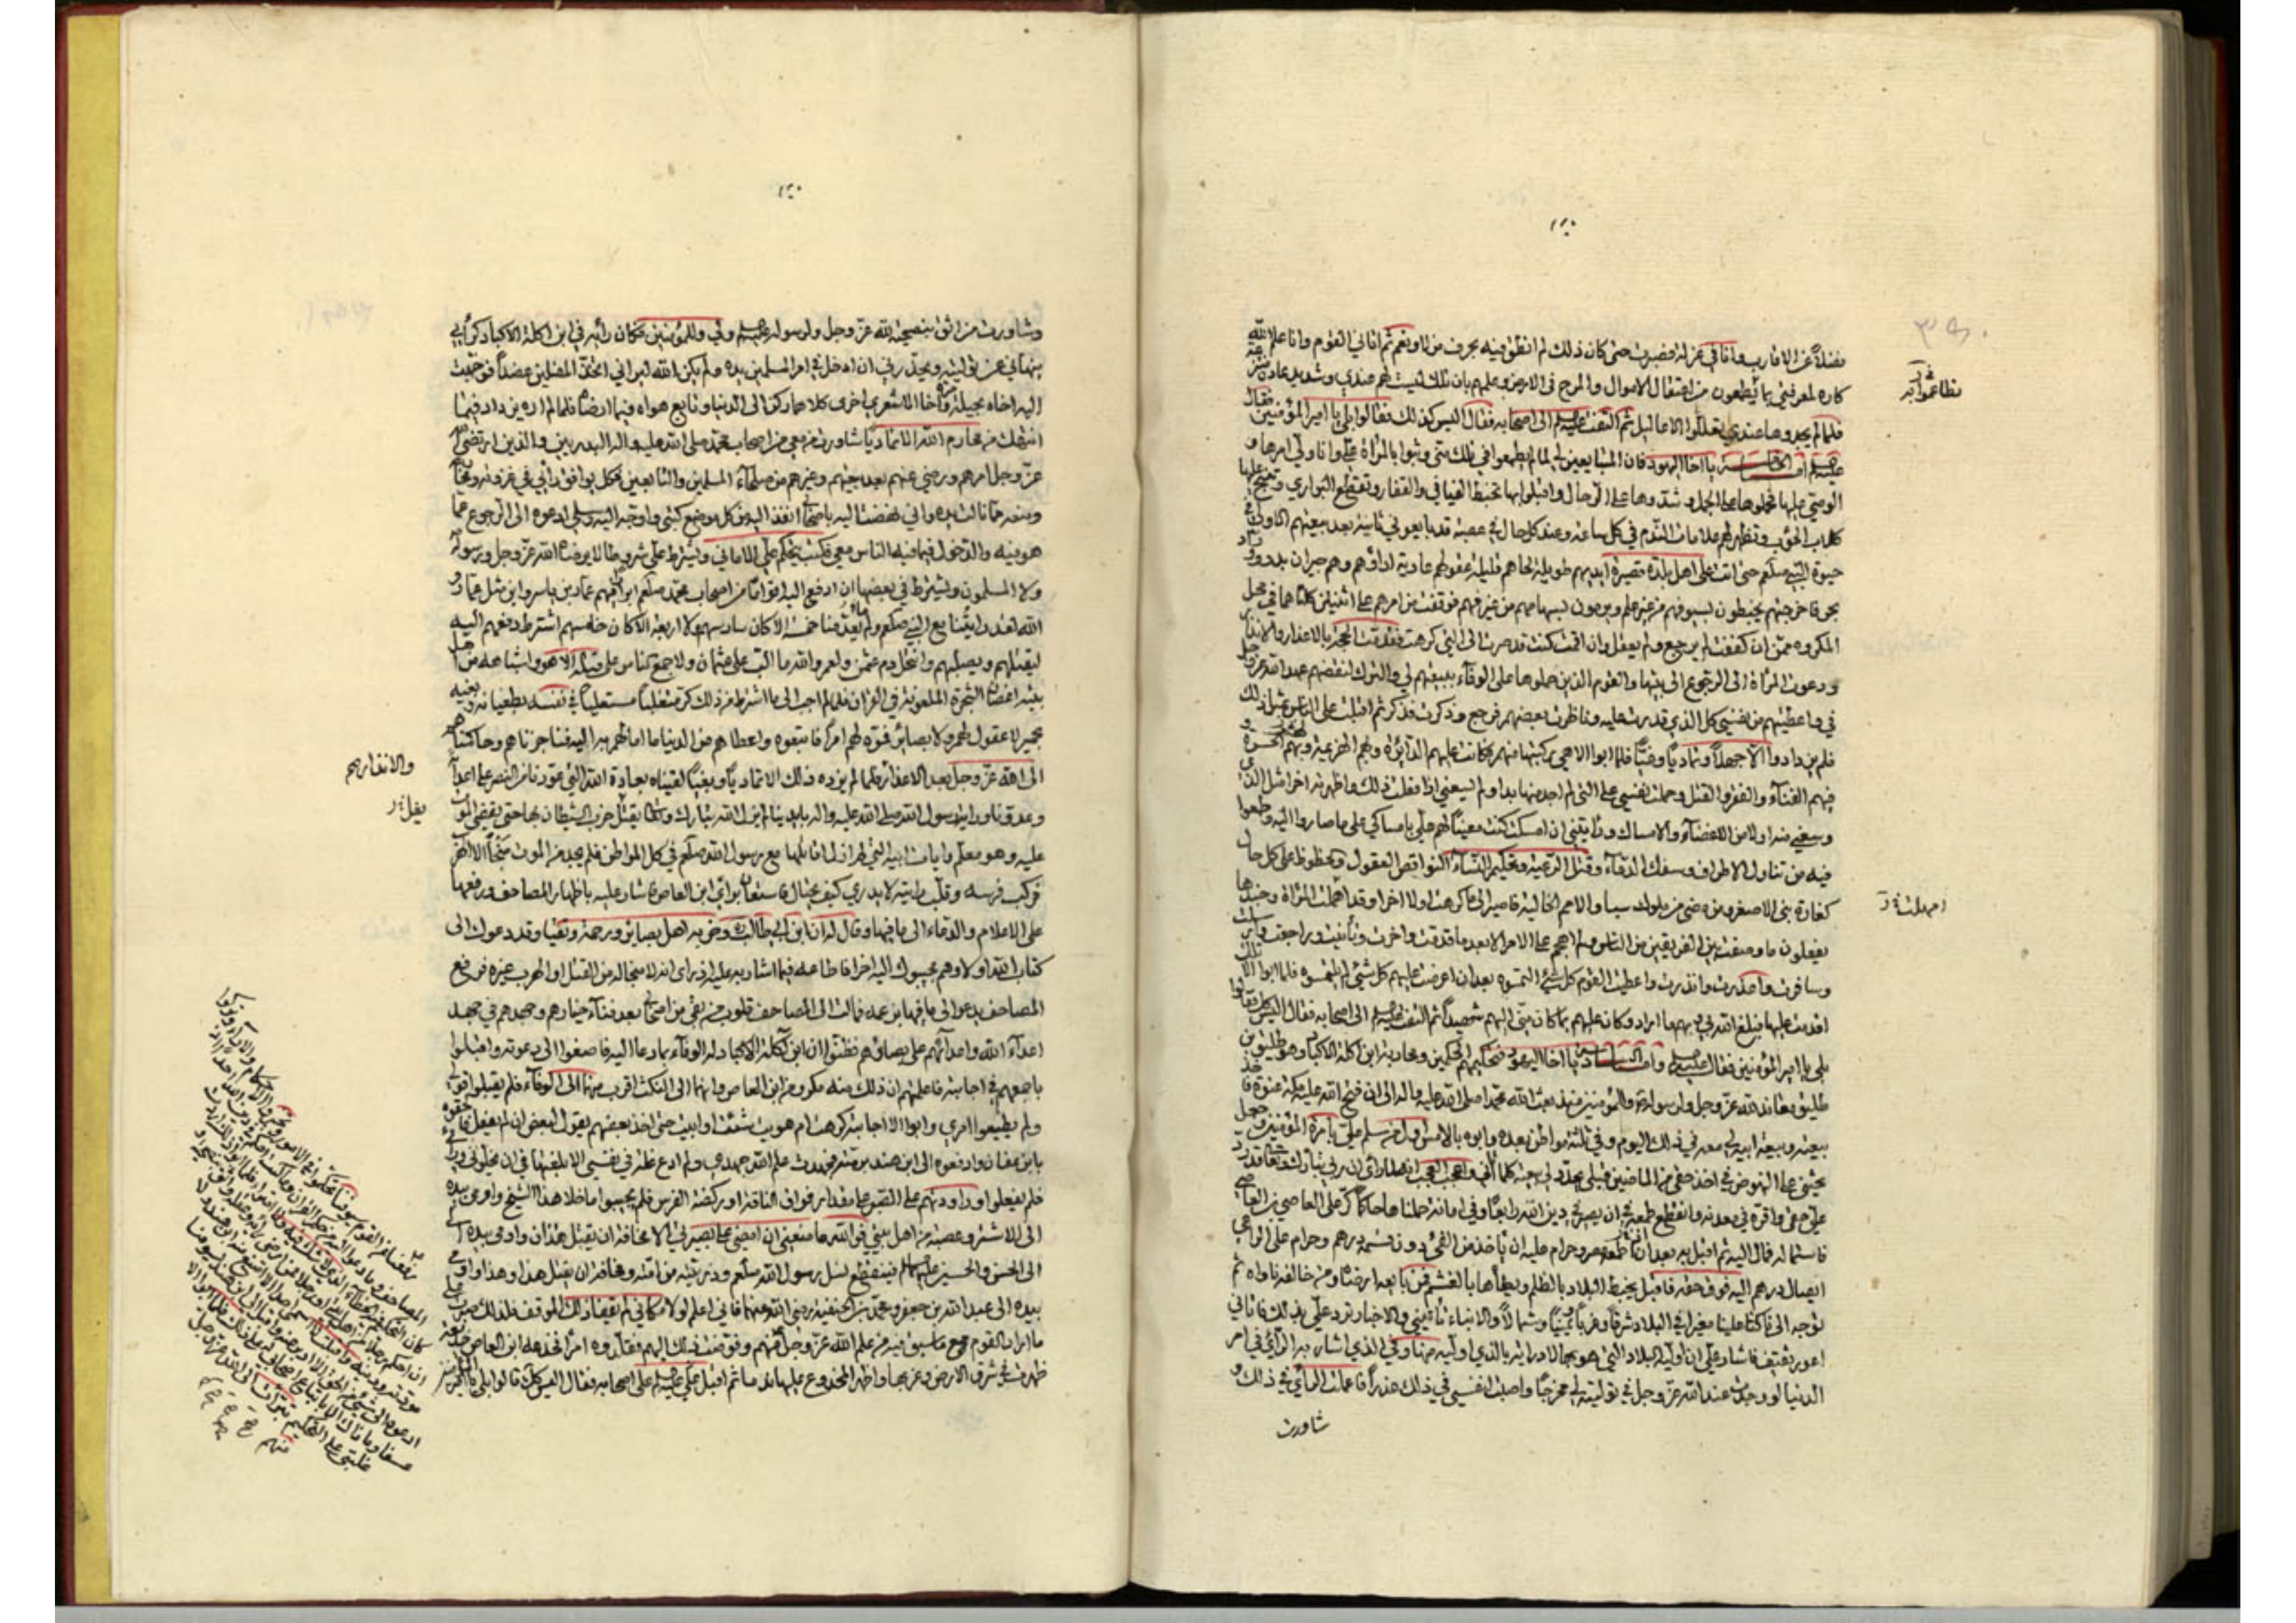 فضلاً عن الاقارب وانا في عزلة فصبرت حتى كان ذلك لم انطق فيه بحرف من لا ونعم ثم اتاني القوم وانا علم الله
كاره لمعرفتي بما يطمعون من اعتقال الاموال والمرح في الارض وعلمهم بان تلك ليست لهم عندي وشديد عادة منتزعة
فلما لم يجدوها عندي تعللوا الاعاليل ثم التفت عليه السلم الى اصحابه فقال اليس كذلك فقالوا بلى يا امير المؤمنين فقال
عليه السلم اما الخامسة يا اخا اليهود فان المتابعين لي لما لم يطمعوا في تلك مني وثبوا بالمراة علي وانا ولي امرها و
الوصي عليها فحملوها على الجمل وشدوها على الرحال واقبلوا بها تخبط الفيافي والقفار وتقطع البراري وتنبح عليها
كلاب الحوئب وتظهر لهم علامات الندم في كل ساعة وعند كل حال في عصبة قد بايعوني ثانية بعد بيعتهم الاولى في
حيوة النبي صلعم حتى اتت على اهل بلدة قصيرة ايديهم طويلة لحاهم قليلة عقولهم عازبة اراؤهم وهم جيران بدو وورّاد
بحر فاخرجتهم يخبطون بسيوفهم من غير علم ويرمون بسهامهم من غير فهم فوقفت من امرهم على اثنتين كلتاهما في محل
المكروه ممن ان كففت لم يرجع ولم يعقل وان اقمت كنت قد صرت الى التي كرهت فقدمت الحجة بالاعذار والانذار
ودعوت المراة الى الرجوع الى بيتها والقوم الذين حملوها على الوفاء ببيعتهم لي والترك لنقضهم عهد الله عز وجل
في واعطيتهم من نفسي كل الذي قدرت عليه وناظرت بعضهم فرجع وذكرت فذكر ثم اقبلت على الناس بمثل ذلك
فلم يزدادوا الا جهلاً وتمادياً وغياً فلما ابوا الا هي ركبتها منهم فكانت عليهم الدائرة وبهم الهزيمة ولهم الحسرة و
فيهم الفناء والقتل وحملت نفسي على التي لم اجد منها بدا ولم يسعني اذ فعلت ذلك واظهرته اخرا مثل الذي
وسعني منه اولا من الاغضاء والامساك ورايتني ان امسكت كنت معيناً لهم علي بامساكي على ما صاروا اليه وطمعوا
فيه من تناول الاطراف وسفك الدماء وقتل الرعية وتحكيم النساء النواقص العقول والحظوظ على كل حال
كعادة بني الاصفر ومن مضى من ملوك سبا والامم الخالية فاصير الى ما كرهت اولا واخرا وقد اهملت المراة وجندها
يفعلون ما وصفت بين الفريقين من الناس ولم اهجم على الامر الا بعد ما قدمت واخرت وتأنيت وراجعت وارسلت
وسافرت واعذرت وانذرت واعطيت القوم كل شيء التمسوه بعد ان اعرضت عليهم كل شيء لم يلتمسوه فلما ابوا الا تلك
اقدمت عليها فبلغ الله بي وبهم ما اراد وكان عليهم بما كان مني اليهم شهيداً ثم التفت عليه السلم الى اصحابه فقال اليس كذلك فقالوا
بلى يا امير المؤمنين فقال عليه السلم واما السادسة يا اخا اليهود فتحكيمهم الحكمين ومحاربة ابن اكلة الاكباد وهو طليق بن
طليق معاند لله عز وجل ولرسوله وللمؤمنين منذ بعث الله محمدا صلى الله عليه واله الى ان فتح الله عليه مكة عنوة فاخذت
بيعته وبيعة ابيه لي معه في ذلك اليوم وفي ثلثة مواطن بعده وابوه بالامس اول من سلم علي بامرة المؤمنين وجعل
يحثني على النهوض في اخذ حقي من الماضين قبلي يجدد لي بيعته كلما اتاني واعجب العجب انه لما راى ان ربي تبارك وتعالى قد رد
علي حقي واقره في معدنه وانقطع طمعه في ان يصير في دين الله رابعاً وفي امانة حملناها حاكماً كر على العاصي بن العاص
فاستماله فمال اليه ثم اقبل به بعد ان اطمعه مصر وحرام عليه ان ياخذ من الفيء دون قسمه درهم وحرام على الراعي
ايصال درهم اليه فوق حقه فاقبل يخبط البلاد بالظلم ويطأها بالغشم فمن بايعه ارضاه ومن خالفه ناواه ثم
توجه الي ناكثا علينا مغيرا في البلاد شرقاً وغرباً ويميناً وشمالاً والانباء تأتيني والاخبار ترد علي بذلك فاتاني
اعور ثقيف فاشار علي ان اوليه البلاد التي هو بها لاداريه بالذي اوليه منها وفي الذي اشار به الرأي في امر
الدنيا لو وجدت عند الله عز وجل في توليته لي مخرجاً واصبت لنفسي في ذلك عذراً فاعملت الرأي في ذلك و
شاورت
وشاورت من اثق بنصيحته لله عز وجل ولرسوله عليه السلم ولي وللمؤمنين فكان رأيه في ابن اكلة الاكباد كرأيي
ينهاني عن توليته ويحذرني ان ادخل في امر المسلمين يده ولم يكن الله ليراني اتخذ المضلين عضداً فوجهت
اليه اخا بجيلة مرة واخا الاشعريين اخرى كلاهما ركن الى الدنيا وتابع هواه فيما ارضاه فلما لم اره يزداد فيما
انتهك من محارم الله الا تمادياً شاورت من معي من اصحاب محمد صلى الله عليه واله البدريين والذين ارتضى الله
عز وجل امرهم ورضي عنهم بعد بيعتهم وغيرهم من صلحاء المسلمين والتابعين فكل يوافق رأيه رأيي في غزوته ومحاربته
ومنعه مما نالت يده واني نهضت اليه باصحابي انفذ اليه من كل موضع كتبي واوجه اليه رسلي ادعوه الى الرجوع عما
هو فيه والدخول فيما فيه الناس معي فكتب يتحكم علي ويتمنى علي الاماني ويشترط علي شروطا لا يرضاها الله عز وجل ورسوله
ولا المسلمون ويشترط في بعضها ان ادفع اليه اقواماً من اصحاب محمد صلعم ابرارا فيهم عمار بن ياسر واين مثل عمار و
الله لقد رايتنا مع النبي صلعم وما يعد منا خمسة الا كان سادسهم ولا اربعة الا كان خامسهم اشترط دفعهم اليه
ليقتلهم ويصلبهم وانتحل دم عثمن ولعمر والله ما الب على عثمان ولا جمع الناس على قتله الا هو واشباهه من اهل
بيته اغصان الشجرة الملعونة في القران فلما لم اجب الى ما اشترط من ذلك كر مستعليا في نفسه بطغيانه وبغيه
بحمير لا عقول لهم ولا بصائر فموه لهم امراً فاتبعوه واعطاهم من الدنيا ما امالهم به اليه فناجزناهم وحاكمناهم
الى الله عز وجل بعد الاعذار فلما لم يزده ذلك الا تمادياً وبغياً لقيناه بعادة الله التي عودنا من النصر على اعدائه
وعدونا وراية رسول الله صلى الله عليه واله بايدينا لم يزل الله تبارك وتعالى يقتل حزب الشيطان بها حتى يقضى الموت
عليه وهو معلم رايات ابيه التي لم ازل اقاتلها مع رسول الله صلعم في كل المواطن فلم يجد من الموت منجاً الا الهرب
فركب فرسه وقلب رايته لا يدري كيف يحتال فاستعان برأي ابن العاص فاشار عليه باظهار المصاحف ورفعها
على الاعلام والدعاء الى ما فيها وقال له ان ابن ابي طالب وحزبه اهل بصاير ورحمة وتقيا وقد دعوك الى
كتاب الله اولا وهم مجيبوك اليه اخرا فاطاعه فيما اشار به عليه اذ راى انه لا منجا له من القتل او الهرب غيره فرفع
المصاحف يدعو الى ما فيها بزعمه فمالت الى المصاحف قلوب من بقي من اصحابي بعد فناء خيارهم وجهدهم في جهاد
اعداء الله واعدائهم على بصائرهم فظنوا ان ابن آكلة الاكباد له الوفاء بما دعا اليه فاصغوا الى دعوته واقبلوا
باجمعهم في اجابته فاعلمتهم ان ذلك منه مكر ومن ابن العاص وانهما الى النكث اقرب منهما الى الوفاء فلم يقبلوا قولي
ولم يطيعوا امري وابوا الا اجابته كرهت ام هويت شئت او ابيت حتى اخذ بعضهم يقول لبعض ان لم يفعل فالحقوه
بابن عفان وادفعوه الى ابن هند برمته فجهدت علم الله جهدي ولم ادع غلة في نفسي الا بلغتها في ان يخلوني ورأيي
فلم يفعلوا وراودتهم على الصبر على مقدار فواق الناقة او ركضة الفرس فلم يجيبوا ما خلا هذا الشيخ واومى بيده
الى الاشتر وعصبة من اهل بيتي فوالله ما منعني ان امضي على بصيرتي الا مخافة ان يقتل هذان واومى بيده الى
الى الحسن والحسين عليهما السلم فينقطع نسل رسول الله صلعم وذريته من امته ومخافة ان يقتل هذا وهذا واومى
بيده الى عبد الله بن جعفر ومحمد بن الحنفية رضي الله عنهما فاني اعلم لولا مكاني لم يقفا ذلك الموقف فلذلك صبرت على
ما اراد القوم مع ما سبق فيه من علم الله عز وجل
ظهرت في شرق الارض وغربها واظهر المخدوع عليها ندما ثم اقبل عليه السلم على اصحابه فقال اليس كذلك قالوا بلى يا امير المؤمنين